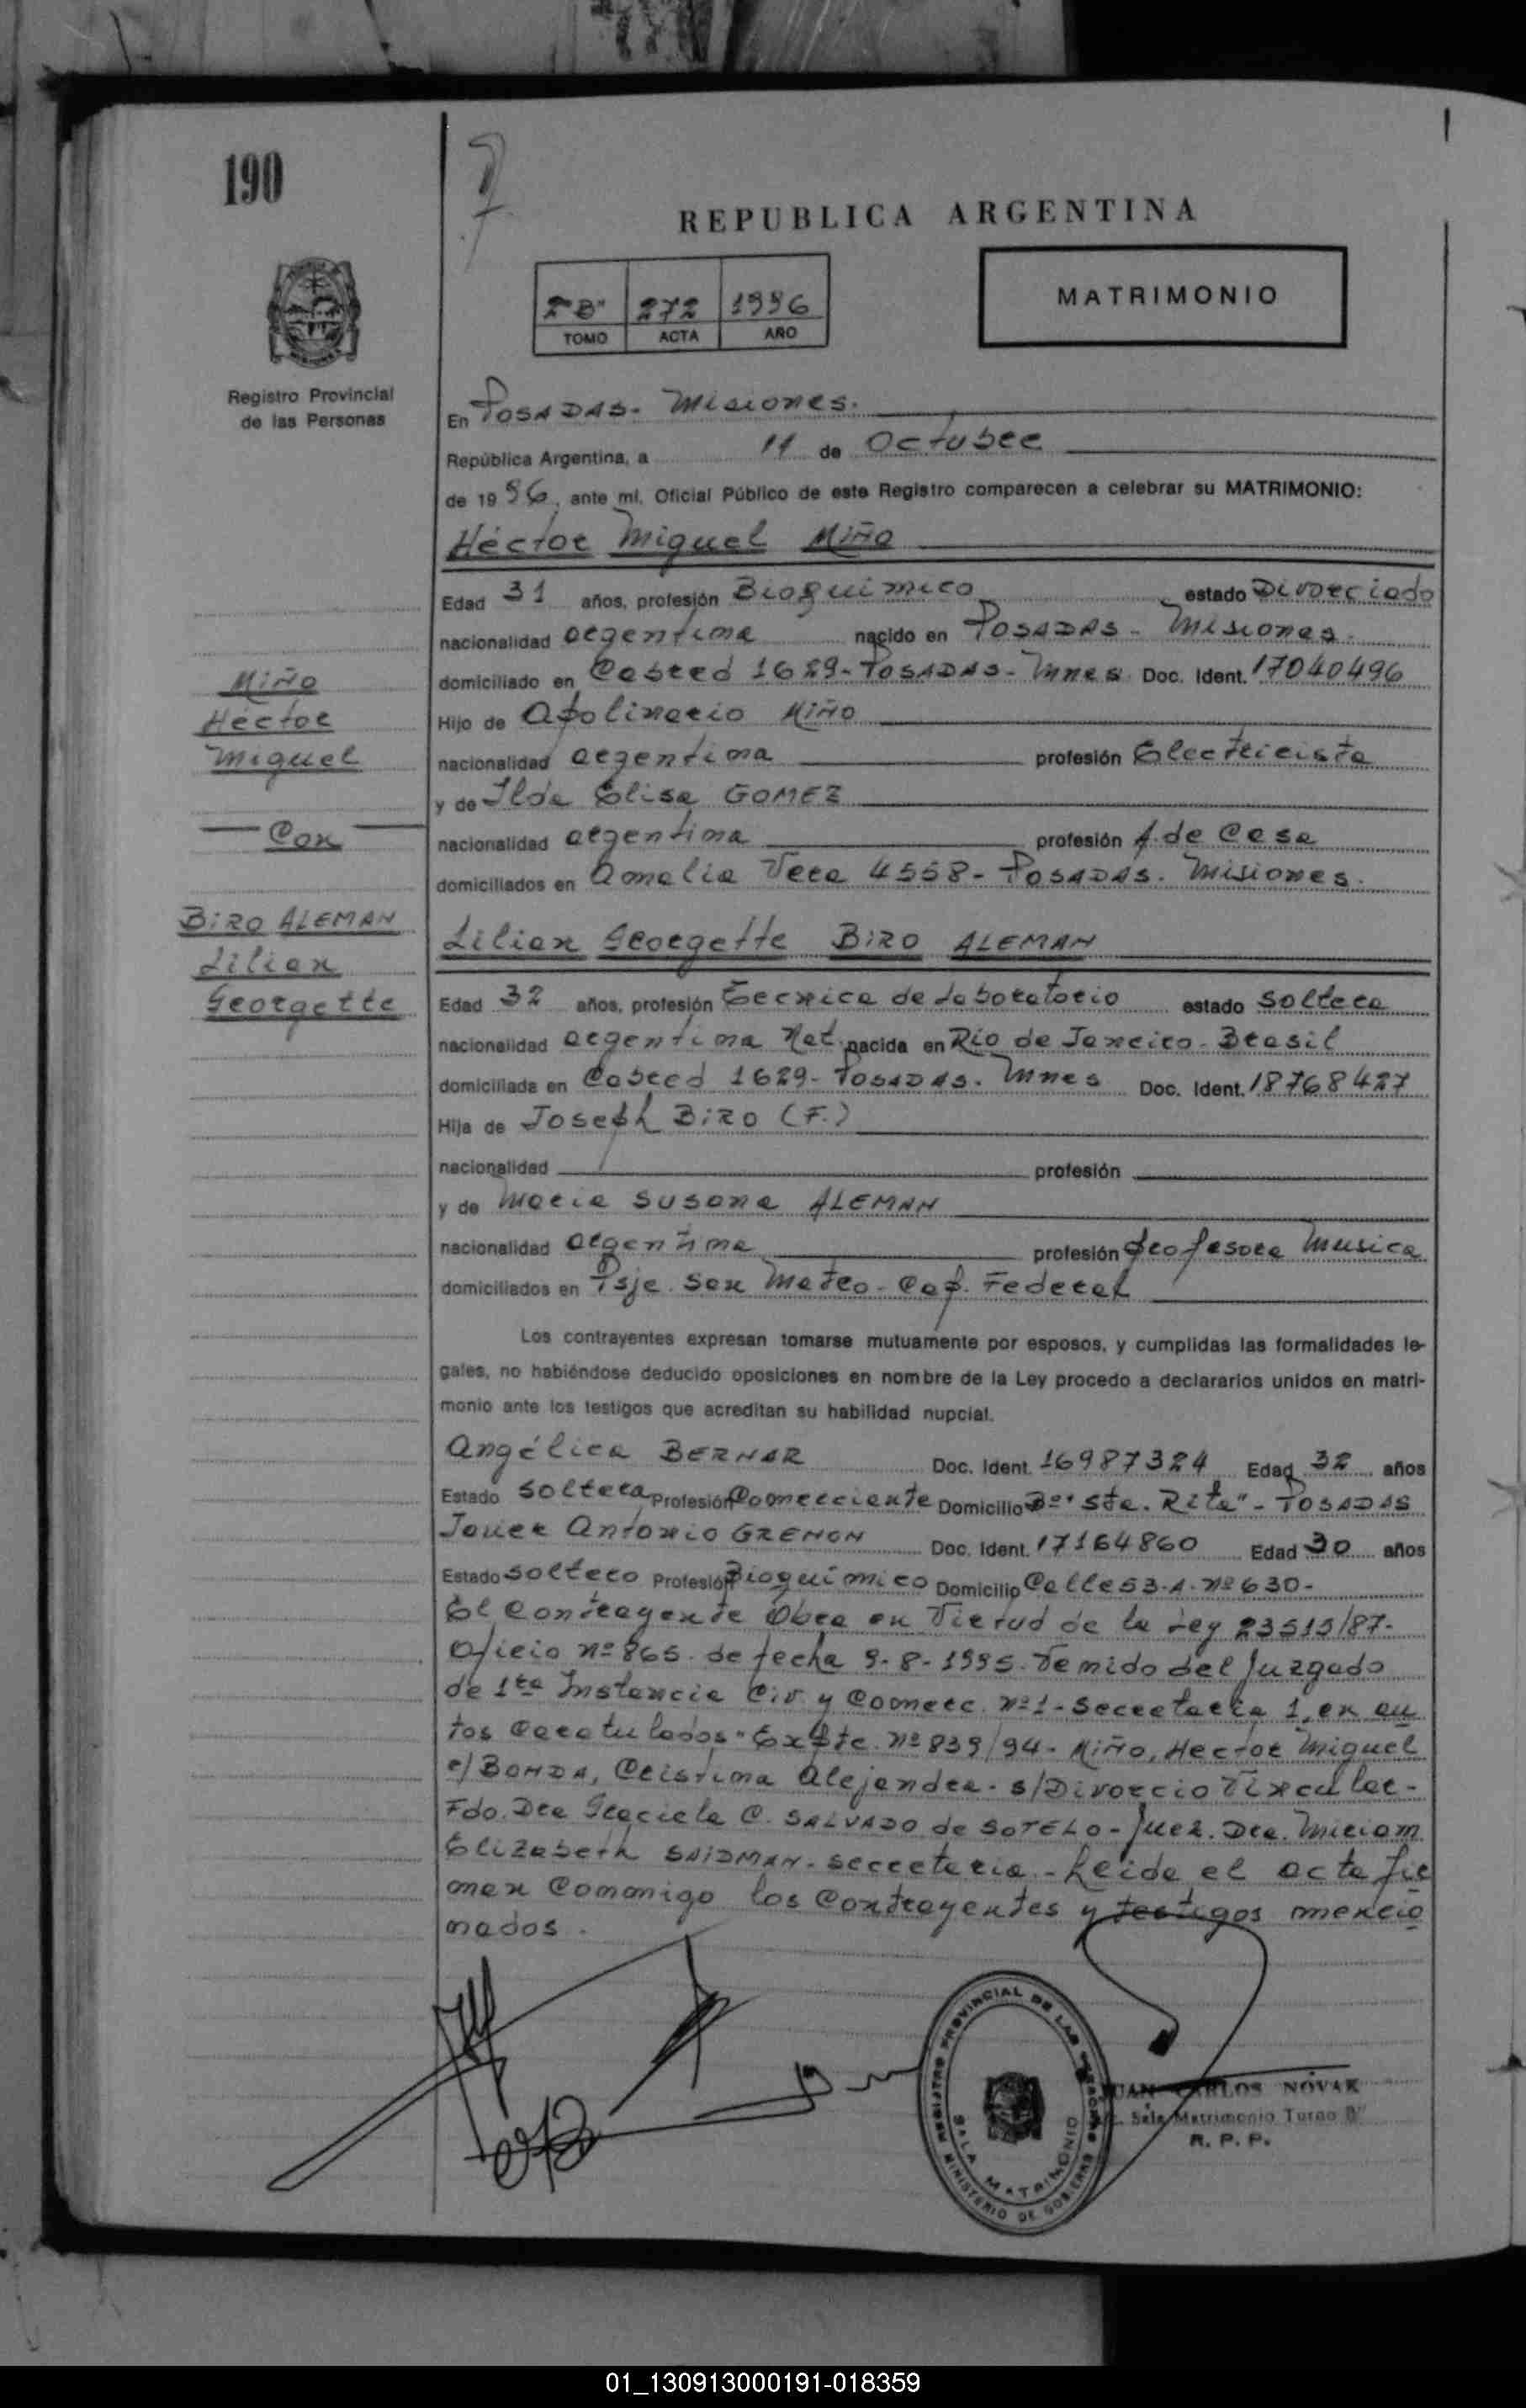 190
REPUBLICA ARGENTINA
2º"B" 272 1996
TOMO ACTA AÑO
MATRIMONIO
Registro Provincial
de las Personas
En POSADAS - Misiones.
República Argentina, a 11 de Octubre
de 1996, ante mí, Oficial Público de este Registro comparecen a celebrar su MATRIMONIO:
Héctor Miguel MIÑO
Edad 31 años, profesión Bioquimico estado Divorciado
nacionalidad argentina nacido en POSADAS - Misiones.
domiciliado en Cabred 1629 - POSADAS - Mnes Doc. Ident. 17040496
Hijo de Apolinario MIÑO
nacionalidad argentina profesión Electricista
y de Ilda Elisa GOMEZ
nacionalidad argentina profesión A. de Casa
domiciliados en Amalia Vera 4558 - POSADAS. Misiones.
MIÑO
Héctor
Miguel
Con
BIRO ALEMAN
Lilian
Georgette
Lilian Georgette BIRO ALEMAN
Edad 32 años, profesión Tecnica de Laboratorio estado Soltera
nacionalidad argentina Nat. nacida en Río de Janeiro - Brasil
domiciliada en Cabred 1629 - POSADAS. Mnes Doc. Ident. 18768427
Hija de Joseph BIRO (F.)
nacionalidad profesión
y de Maria Susana ALEMAN
nacionalidad argentina profesión Profesora Musica
domiciliados en Psje. San Mateo - Cap. Federal
Los contrayentes expresan tomarse mutuamente por esposos, y cumplidas las formalidades le-
gales, no habiéndose deducido oposiciones en nombre de la Ley procedo a declararlos unidos en matri-
monio ante los testigos que acreditan su habilidad nupcial.
Angélica BERNAR Doc. Ident. 16987324 Edad 32 años
Estado Soltera Profesión Comerciante Domicilio Bº "Sta. Rita" - POSADAS
Javier Antonio GRENON Doc. Ident. 17164860 Edad 30 años
Estado Soltero Profesión Bioquimico Domicilio Calle 53-A-Nº 630-
El Contrayente Obra en Virtud de la Ley 23515/87-
Oficio Nº 865. de fecha 9-8-1995. Venido del Juzgado
de 1ra Instancia Civ. y Comerc. Nº 1 - Secretaria 1, en au
tos Caratulados "Expte. Nº 839/94 - MIÑO, Hector Miguel
c/ BONDA, Cristina Alejandra. s/Divorcio Vincular-
Fdo. Dra Graciela C. SALVADO de SOTELO - Juez. Dra. Miriam
Elizabeth SAIDMAN - Secretaria. - Leida el acta fir
man Conmigo los Contrayentes y testigos mencio
nados.
REGISTRO PROVINCIAL DE LAS PERSONAS
SALA MATRIMONIO
MINISTERIO DE GOBIERNO
JUAN CARLOS NOVAK
Sala Matrimonio Turno "B"
R. P. P.
01_130913000191-018359